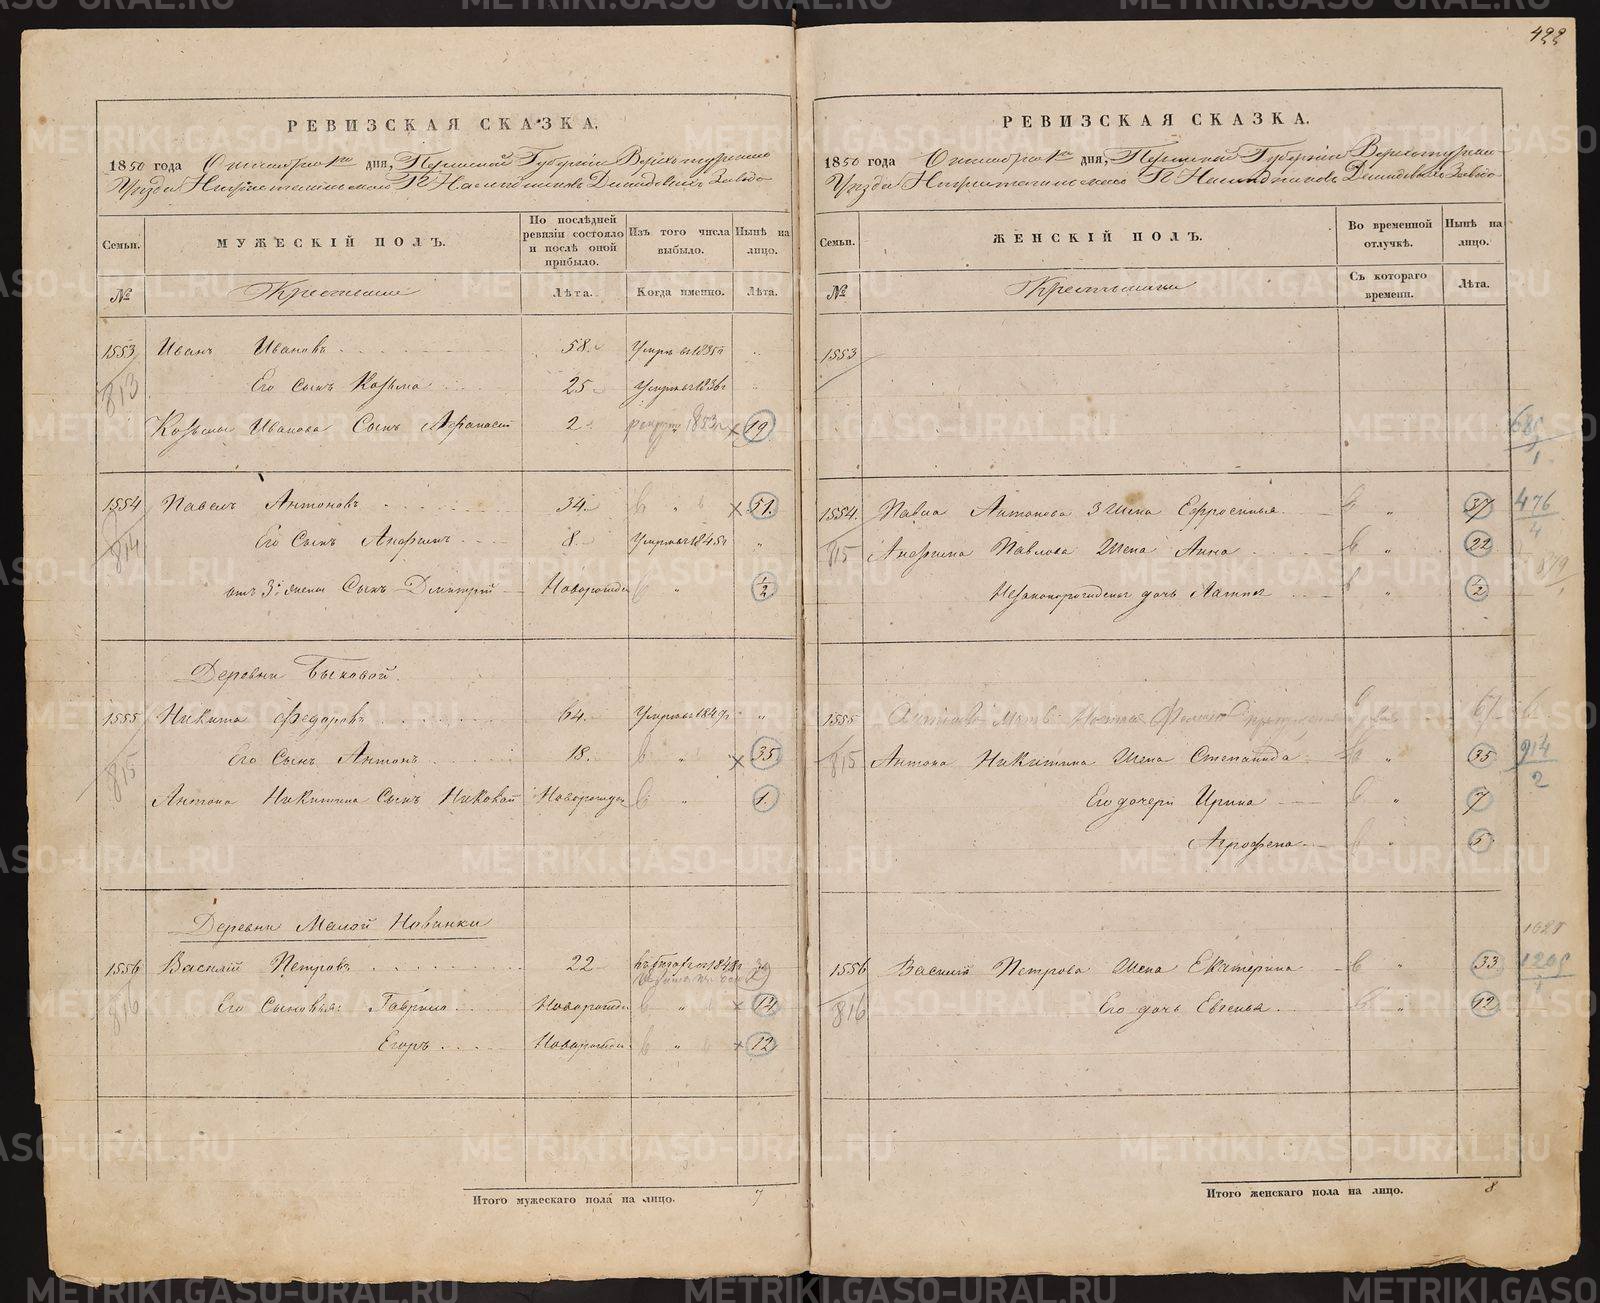 422
РЕВИЗСКАЯ СКАЗКА.
1850 года Октября 1го дня, Пермской Губернии Верхотурскаго
Уѣзда Нижнетагильскаго Г. Наслѣдниковъ Демидовыхъ Завода
Семьи.
МУЖЕСКІЙ ПОЛЪ.
По послѣдней ревизіи состояло и послѣ оной прибыло.
Изъ того числа выбыло.
Нынѣ на лицо.
№
Крестьяне
Лѣта.
Когда именно.
Лѣта.
1553 Иванъ Ивановъ 58. Умеръ въ 1835г
813 Его Сынъ Козьма 25 Умеръ въ 1836г
Козьмы Иванова Сынъ Афанасій 2 рекрут 1853г 19
1554 Павелъ Антоновъ 34. 51.
814 Его Сынъ Анфимъ 8. Умеръ въ 1845г
отъ 3й жены Сынъ Дмитрій Новорожден ½
Деревни Быковой.
1555 Никита Федоровъ 64. Умеръ въ 1847г
815 Его Сынъ Антонъ 18. 35
Антона Никитина Сынъ Новорожден 1.
Деревни Малой Новинки
1556 Василій Петровъ 22
816 Его Сыновья: Гаврило Новорожден 14
Егоръ Новорожден 12
Итого мужескаго пола на лицо. 7
РЕВИЗСКАЯ СКАЗКА.
1850 года Октября 1го дня, Пермской Губерніи Верхотурскаго
Уѣзда Нижнетагильскаго Г. Наслѣдниковъ Демидовыхъ Завода
Семьи.
ЖЕНСКІЙ ПОЛЪ.
Во временной отлучкѣ.
Нынѣ на лицо.
№
Крестьянки
Съ котораго времени.
Лѣта.
1553
1554. Павла Антонова 3 Жена Ефросинья 37 476/4
815 Анфима Павлова Жена Анна 22
Незаконорожденная дочь ½
1555 67
815 Антона Никитина Жена Степанида 35 914/2
Его дочери Ирина 7
Агрофена 5
1556 Василія Петрова Жена Екатерина 33
816 Его дочь Евгенья 12
Итого женскаго пола на лицо. 8
METRIKI.GASO-URAL.RU